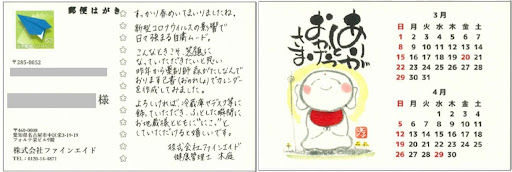 郵便はがき
〒285-0052
様
〒460-0008
愛知県名古屋市中区栄3-19-19
フォルテ栄ビル9階
株式会社ファインエイド
TEL:0120-14-4871
すっかり春めいてまいりましたね。
新型コロナウイルスの影響で
日々強まる自粛ムード。
こんなときこそ、笑顔に
なっていただきたいと思い
昨年から薬剤師 森がたしなんで
おります己書(おのれしょ)でカレンダー
を作成してみました。
よろしければ、冷蔵庫やデスク等に
飾っていただき、ふとした瞬間に
お地蔵様とともに"にこっ"と
していただけると嬉しいです。
株式会社ファインエイド
健康管理士 木庭
ありが
とう
おかげ
さま
3月
日 月 火 水 木 金 土
1 2 3 4 5 6 7
8 9 10 11 12 13 14
15 16 17 18 19 20 21
22 23 24 25 26 27 28
29 30 31
4月
日 月 火 水 木 金 土
1 2 3 4
5 6 7 8 9 10 11
12 13 14 15 16 17 18
19 20 21 22 23 24 25
26 27 28 29 30